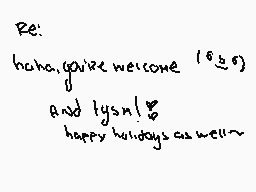 Re:
haha, you're welcome (ò ᴗ ó)
And tysm! ❣
happy holidays as well~